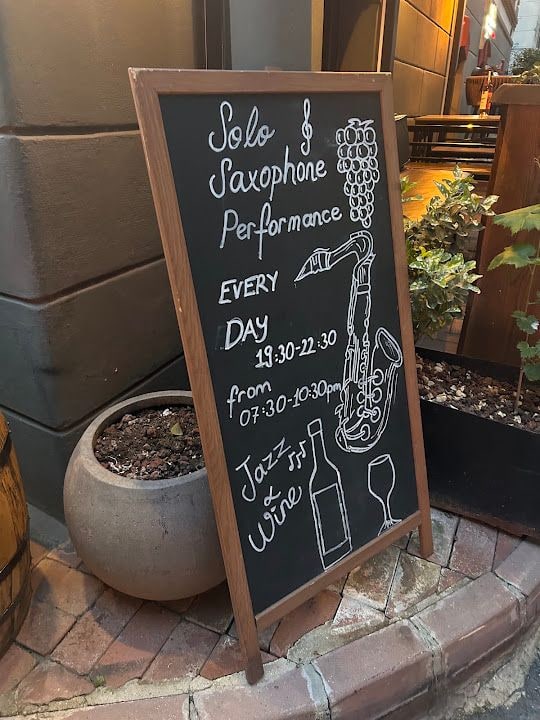 Solo
Saxophone
Performance
EVERY
DAY
19:30-22:30
from
07:30-10:30pm
Jazz
&
Wine